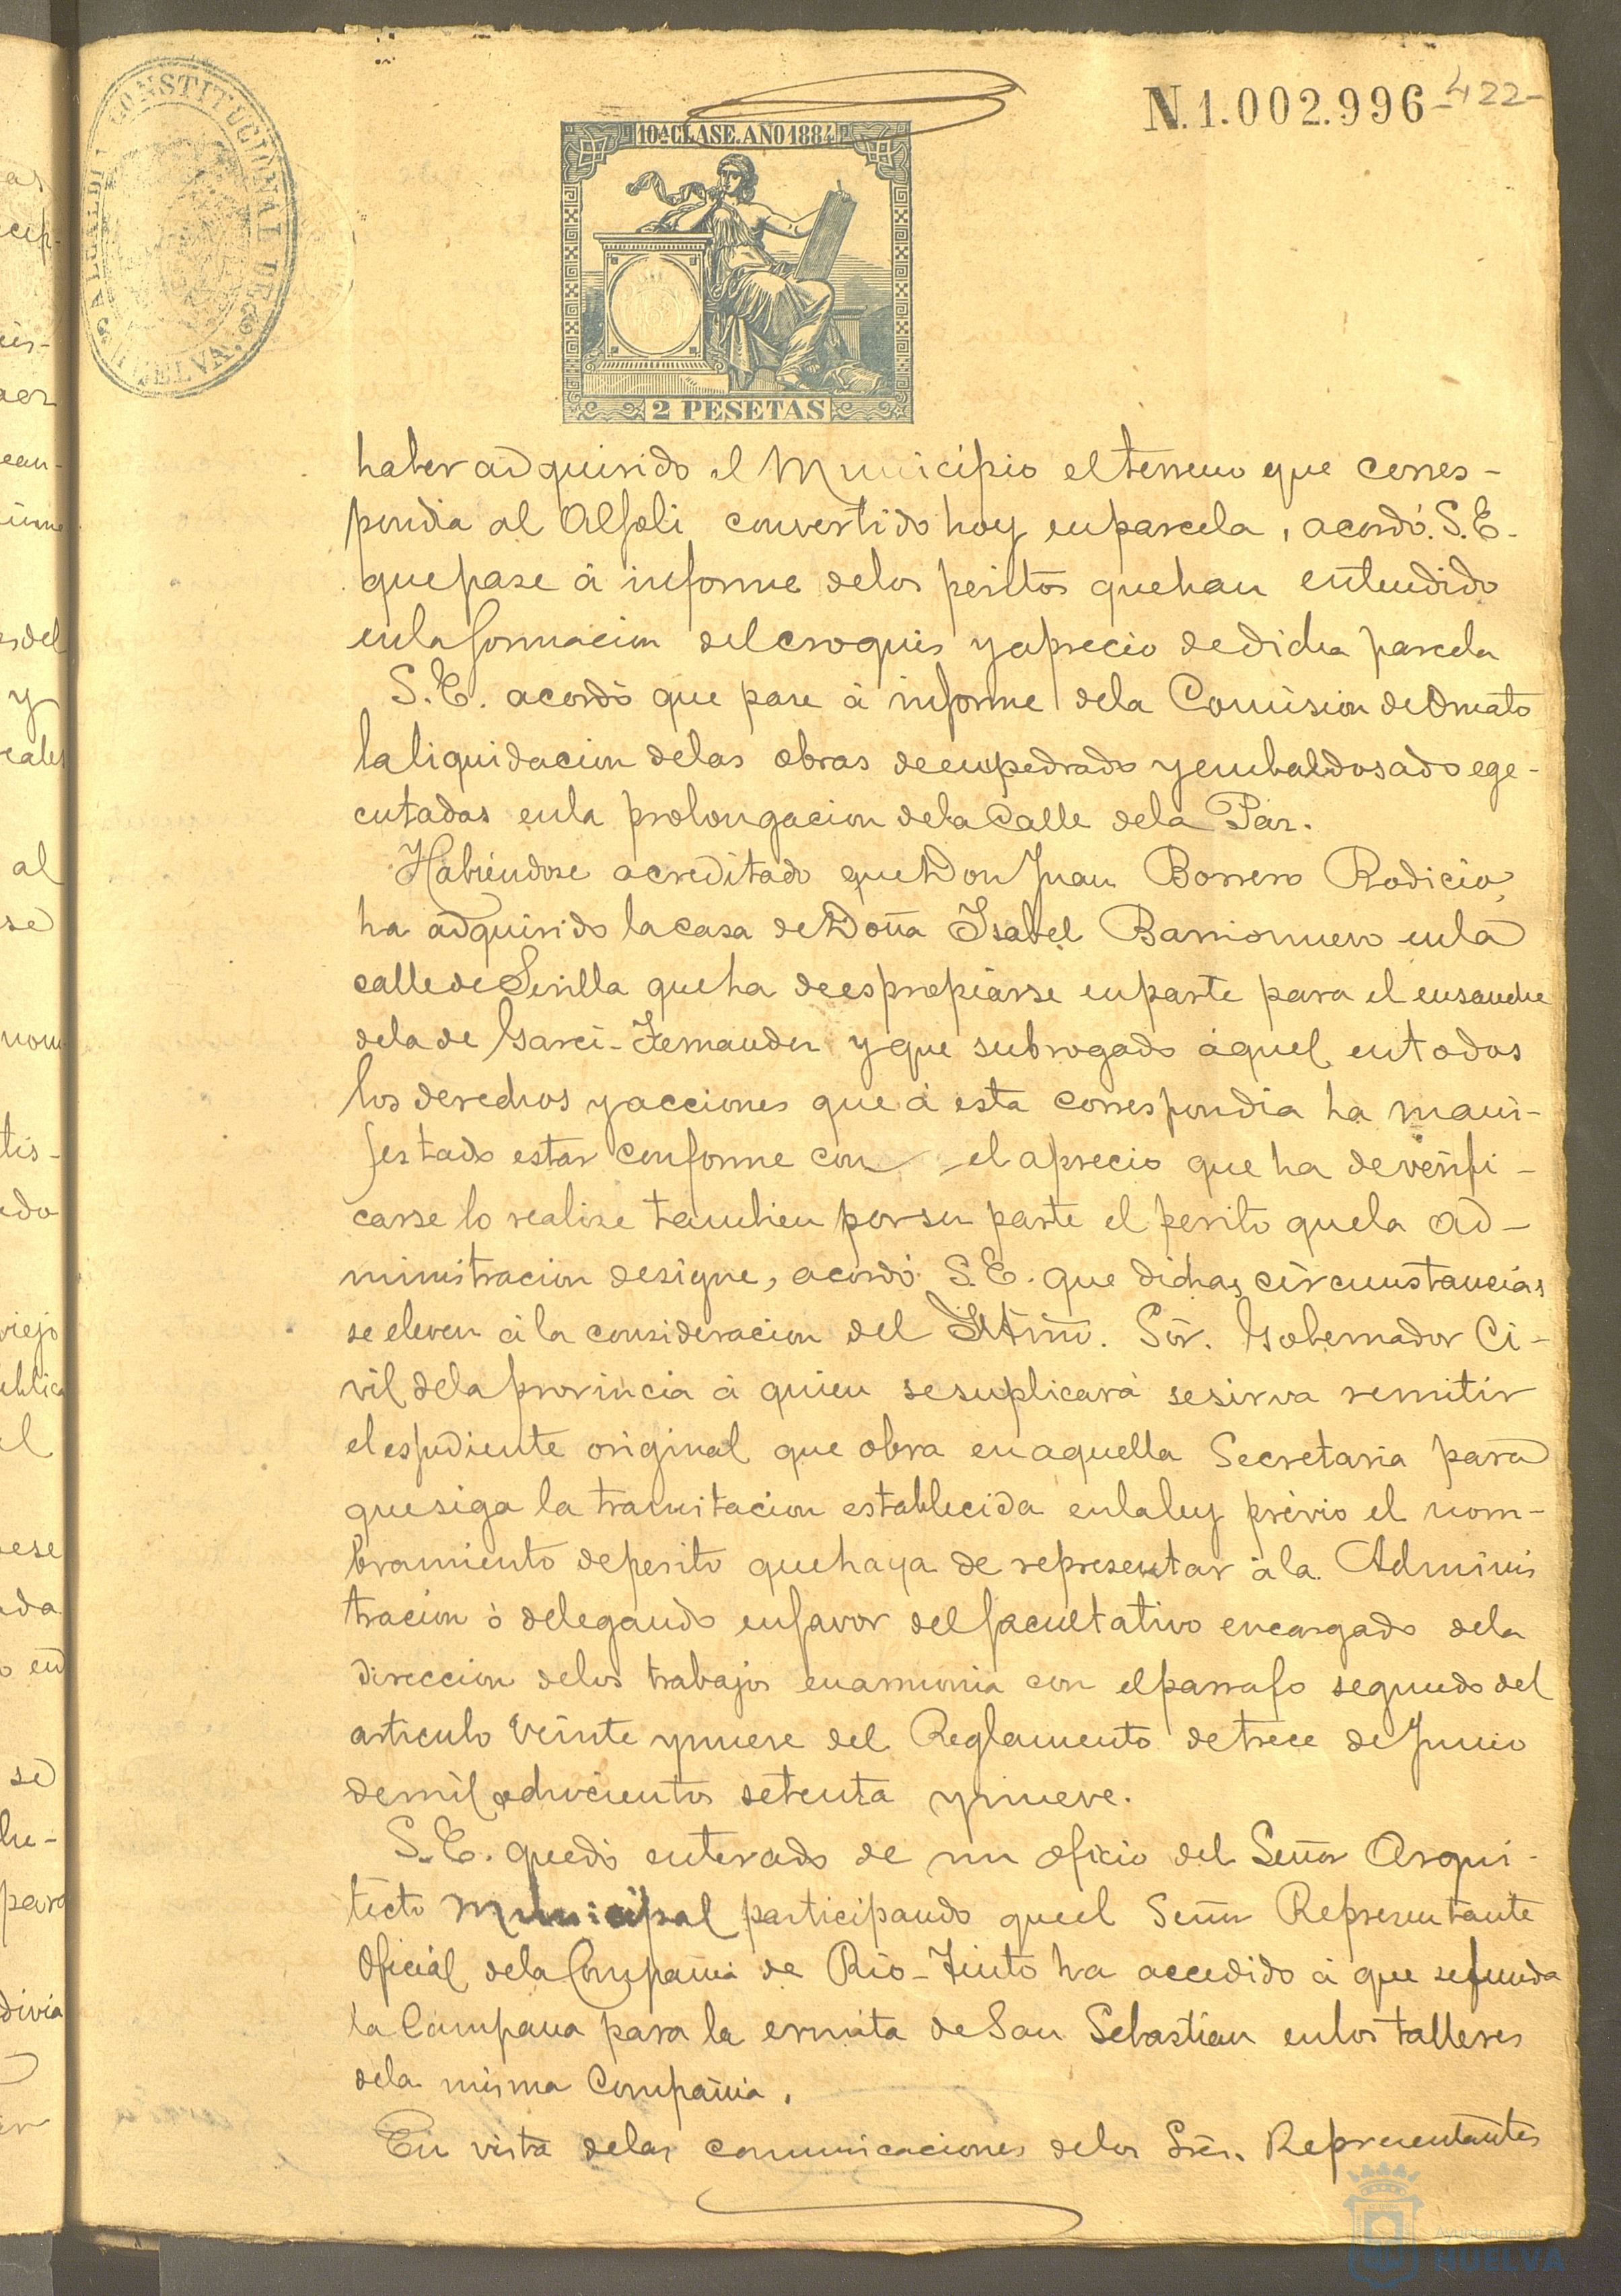 N.1.002.996
-422-
ALCALDIA CONSTITUCIONAL DE HUELVA.
10ª CLASE. AÑO 1884
2 PESETAS
haber adquirido el Municipio el terreno que corres-
pondia al Alfoli convertido hoy en parcela, acordó S.E.
que pase á informe de los peritos que han entendido
en la formacion del croquis y aprecio de dicha parcela
S.E. acordó que pase á informe de la Comision de Ornato
la liquidacion de las obras de empedrado y embaldosado ege-
cutadas en la prolongacion de la Calle de la Paz.
Habiendose acreditado que Don Juan Borrero Rodicio,
ha adquirido la casa de Doña Isabel Barrionuevo en la
calle de Sevilla que ha de espropiarse en parte para el ensanche
de la de Garci-Fernandez y que subrogado áquel en todos
los derechos y acciones que á esta correspondia ha mani-
festado estar conforme con el aprecio que ha de verifi-
carse lo realize tambien por su parte el perito que la ad-
ministracion designe, acordó S.E. que dichas circunstancias
se eleven á la consideracion del Iltmo. Sör. Gobernador Ci-
vil de la provincia á quien se suplicará se sirva remitir
el espediente original que obra en aquella Secretaria para
que siga la tramitacion establecida en la ley prévio el nom-
bramiento de perito que haya de representar á la Adminis
tracion ó delegando en favor del facultativo encargado de la
direccion de los trabajos en armonia con el parrafo segundo del
articulo veinte y nueve del Reglamento de trece de Junio
de mil ochocientos setenta y nueve.
S.E. quedó enterado de un oficio del Señor Arqui-
tecto Municipal participando que el Señor Representante
Oficial de la Compañia de Rio-Tinto ha accedido á que se funda
la Campana para la ermita de San Sebastian en los talleres
de la misma Compañia.
En vista de las comunicaciones de los Sres. Representantes
Ayuntamiento de
HUELVA